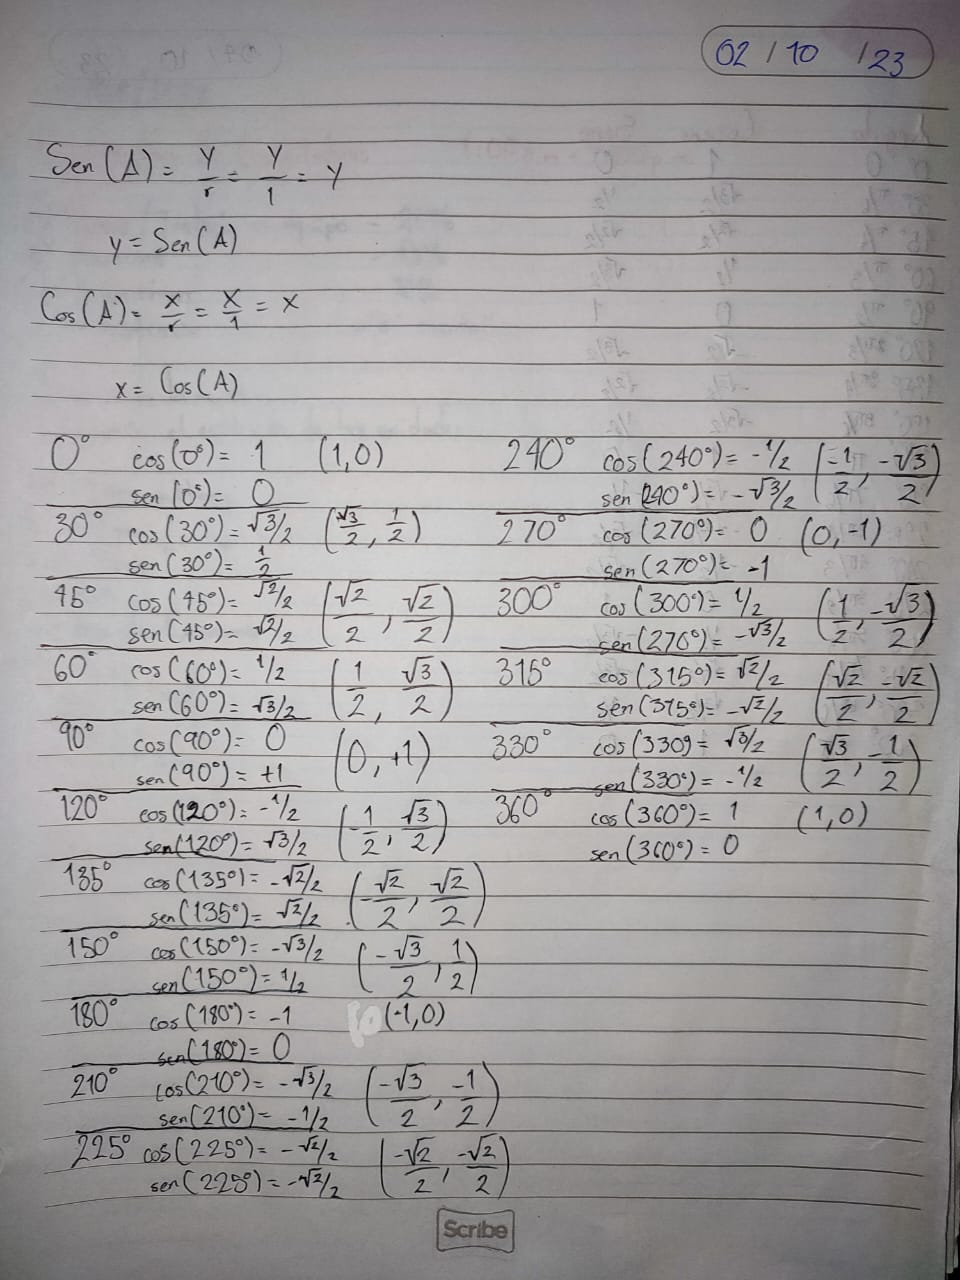 02 / 10 / 23
Sen(A) = y/r = y/1 = y
y = Sen(A)
Cos(A) = x/r = x/1 = x
x = Cos(A)
0° cos(0°) = 1 (1,0)
sen(0°) = 0
30° cos(30°) = √3/2 (√3/2, 1/2)
sen(30°) = 1/2
45° cos(45°) = √2/2 (√2/2, √2/2)
sen(45°) = √2/2
60° cos(60°) = 1/2 (1/2, √3/2)
sen(60°) = √3/2
90° cos(90°) = 0 (0, +1)
sen(90°) = +1
120° cos(120°) = -1/2 (-1/2, √3/2)
sen(120°) = √3/2
135° cos(135°) = -√2/2 (-√2/2, √2/2)
sen(135°) = √2/2
150° cos(150°) = -√3/2 (-√3/2, 1/2)
sen(150°) = 1/2
180° cos(180°) = -1 (-1,0)
sen(180°) = 0
210° cos(210°) = -√3/2 (-√3/2, -1/2)
sen(210°) = -1/2
225° cos(225°) = -√2/2 (-√2/2, -√2/2)
sen(225°) = -√2/2
240° cos(240°) = -1/2 (-1/2, -√3/2)
sen(240°) = -√3/2
270° cos(270°) = 0 (0,-1)
sen(270°) = -1
300° cos(300°) = 1/2 (1/2, -√3/2)
sen(270°) = -√3/2
315° cos(315°) = √2/2 (√2/2, -√2/2)
sen(315°) = -√2/2
330° cos(330) = √3/2 (√3/2, -1/2)
sen(330°) = -1/2
360° cos(360°) = 1 (1,0)
sen(360°) = 0
Scribe